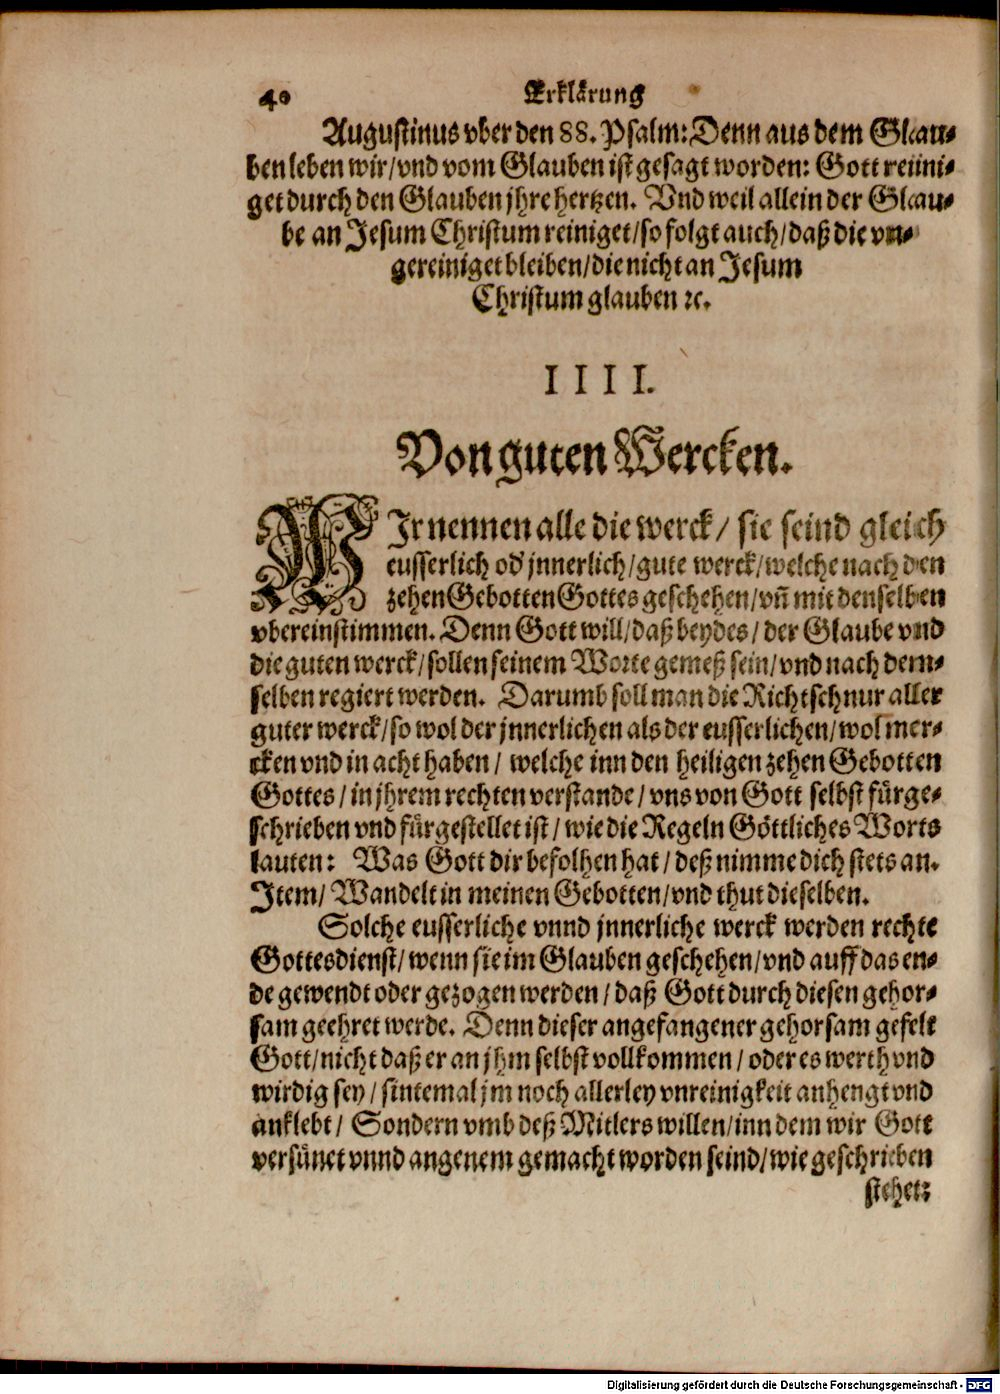 40 Erklärung
Augustinus vber den 88. Psalm: Denn aus dem Glau-
ben leben wir/ vnd vom Glauben ist gesagt worden: Gott reini-
get durch den Glauben jhre hertzen. Vnd weil allein der Glau-
be an Jesum Christum reiniget/ so folgt auch/ daß die vn-
gereiniget bleiben/ die nicht an Jesum
Christum glauben ꝛc.
IIII.
Von guten Wercken.
WIr nennen alle die werck/ sie seind gleich
eusserlich od' jnnerlich/ gute werck/ welche nach den
zehen Gebotten Gottes geschehen/ vñ mit denselben
vbereinstimmen. Denn Gott will/ daß beydes/ der Glaube vnd
die guten werck/ sollen seinem Worte gemeß sein/ vnd nach dem-
selben regiert werden. Darumb soll man die Richtschnur aller
guter werck/ so wol der jnnerlichen als der eusserlichen/ wol mer-
cken vnd in acht haben/ welche inn den heiligen zehen Gebotten
Gottes/ in jhrem rechten verstande/ vns von Gott selbst fürge-
schrieben vnd fürgestellet ist/ wie die Regeln Göttliches Worts
lauten: Was Gott dir befolhen hat/ deß nimme dich stets an.
Item/ Wandelt in meinen Gebotten/ vnd thut dieselben.
Solche eusserliche vnnd jnnerliche werck werden rechte
Gottesdienst/ wenn sie im Glauben geschehen/ vnd auff das en-
de gewendt oder gezogen werden/ daß Gott durch diesen gehor-
sam geehret werde. Denn dieser angefangener gehorsam gefelt
Gott/ nicht daß er an jhm selbst vollkommen/ oder es werth vnd
wirdig sey/ sintemal jm noch allerley vnreinigkeit anhengt vnd
anklebt/ Sondern vmb deß Mitlers willen/ inn dem wir Gott
versünet vnnd angenem gemacht worden seind/ wie geschrieben
stehet:
Digitalisierung gefördert durch die Deutsche Forschungsgemeinschaft - DFG